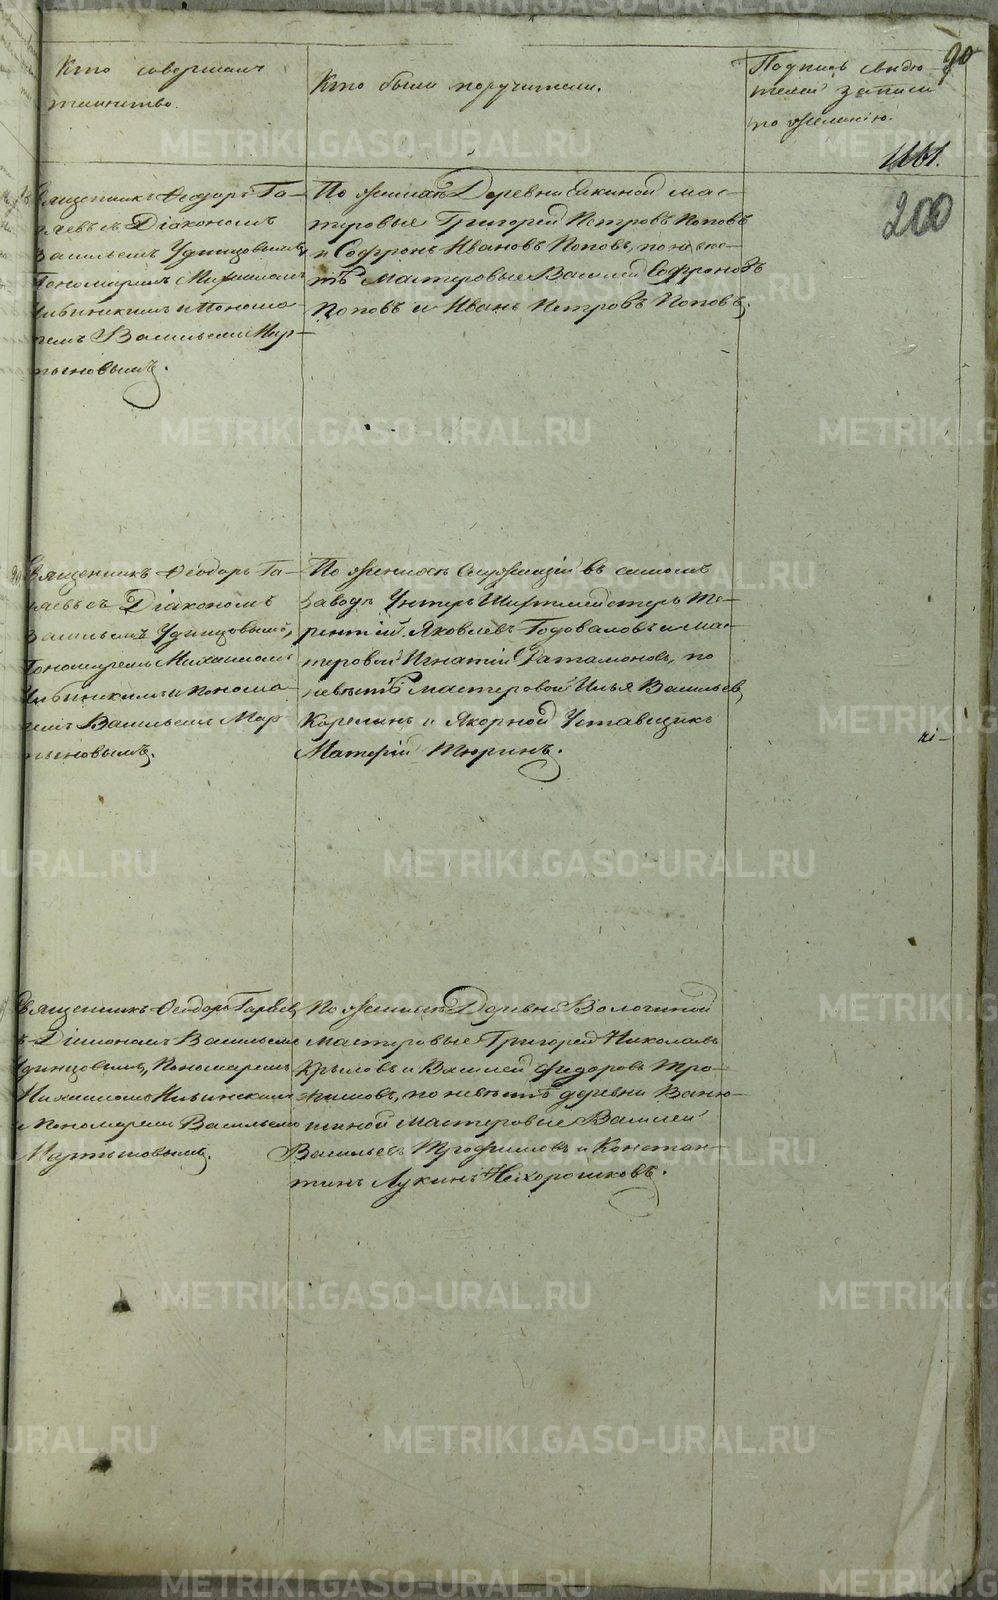 Кто совершалъ
таинство.
Кто были поручители.
Подпись свидѣ-
телей записи
по желанію.
90
200
Священникъ Ѳеодоръ Га-
ряевъ съ Діакономъ
Васильемъ Удинцовымъ,
Пономаремъ Михаиломъ
Ильинскимъ и Понома-
ремъ Васильемъ Мар-
тыновымъ.
По женихѣ Деревни Ёлкиной мас-
теровые Григорей Петровъ Поповъ
и Софронъ Ивановъ Поповъ, по невѣс-
тѣ Мастеровые Василей Софроновъ
Поповъ и Иванъ Петровъ Поповъ.
Священникъ Ѳеодоръ Га-
ряевъ съ Діакономъ
Васильемъ Удинцовымъ,
Пономаремъ Михаиломъ
Ильинскимъ и Понома-
ремъ Васильемъ Мар
тыновымъ.
По женихѣ Служащій въ самомъ
заводѣ Унтеръ Шихтмейстеръ Те-
рентій Яковлевъ Годоваловъ и мас-
теровой Игнатій Ратамоновъ, по
невѣстѣ мастеровой Илья Васильевъ
Карелинъ и Якорной Уставщикъ
Матѳій Тюринъ.
Священникъ Ѳеодоръ Гаряевъ
съ Діакономъ Васильемъ
Удинцовымъ, Пономаремъ
Михаиломъ Ильинскимъ
и Пономаремъ Васильемъ
Мартыновымъ.
По женихѣ Деревни Волегиной
мастеровые Григорей Николаевъ
Крыловъ и Василей Федоровъ Тро-
фимовъ, по невѣстѣ деревни Ваню-
шиной мастеровые Василей
Васильевъ Трофимовъ и Констан-
тинъ Лукинъ Нехорошковъ.
METRIKI.GASO-URAL.RU